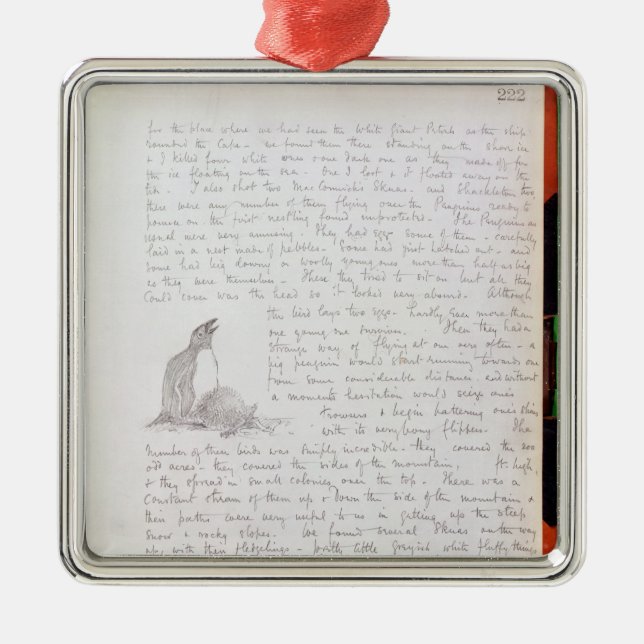 222
for the place where we had seen the White Giant Petrels as the ship
rounded the Cape - we found them there standing on the shore ice
& I killed four white ones & one dark one as they made off for
the ice floating on the sea. One I lost & it floated away on the
tide. I also shot two MacCormick's Skuas. and Shackleton two
there were any number of them flying over the Penguins ready to
pounce on the first nestling found unprotected. The Penguins as
usual were very amusing. They had eggs some of them - carefully
laid in a nest made of pebbles. Some had just hatched out - and
some had big downy or woolly young ones more than half as big
as they were themselves. These they tried to sit on but all they
could cover was the head so it looked very absurd. Although
this bird lays two eggs - hardly ever more than
one young one survives. Then they had a
strange way of flying at one very often - a
big penguin would start running towards one
from some considerable distance. and without
a moments hesitation would seize ones
trowsers & begin battering ones shins
with its very bony flippers. The
number of these birds was simply incredible. they covered the 200
odd acres - they covered the sides of the mountain, ft high,
& they spread in small colonies over the top. There was a
constant stream of them up & down the side of the mountain &
their paths were very useful to us in getting up the steep
snow & rocky slopes. We found several Skuas on the way
up, with their fledgelings - pretty little greyish white fluffy things